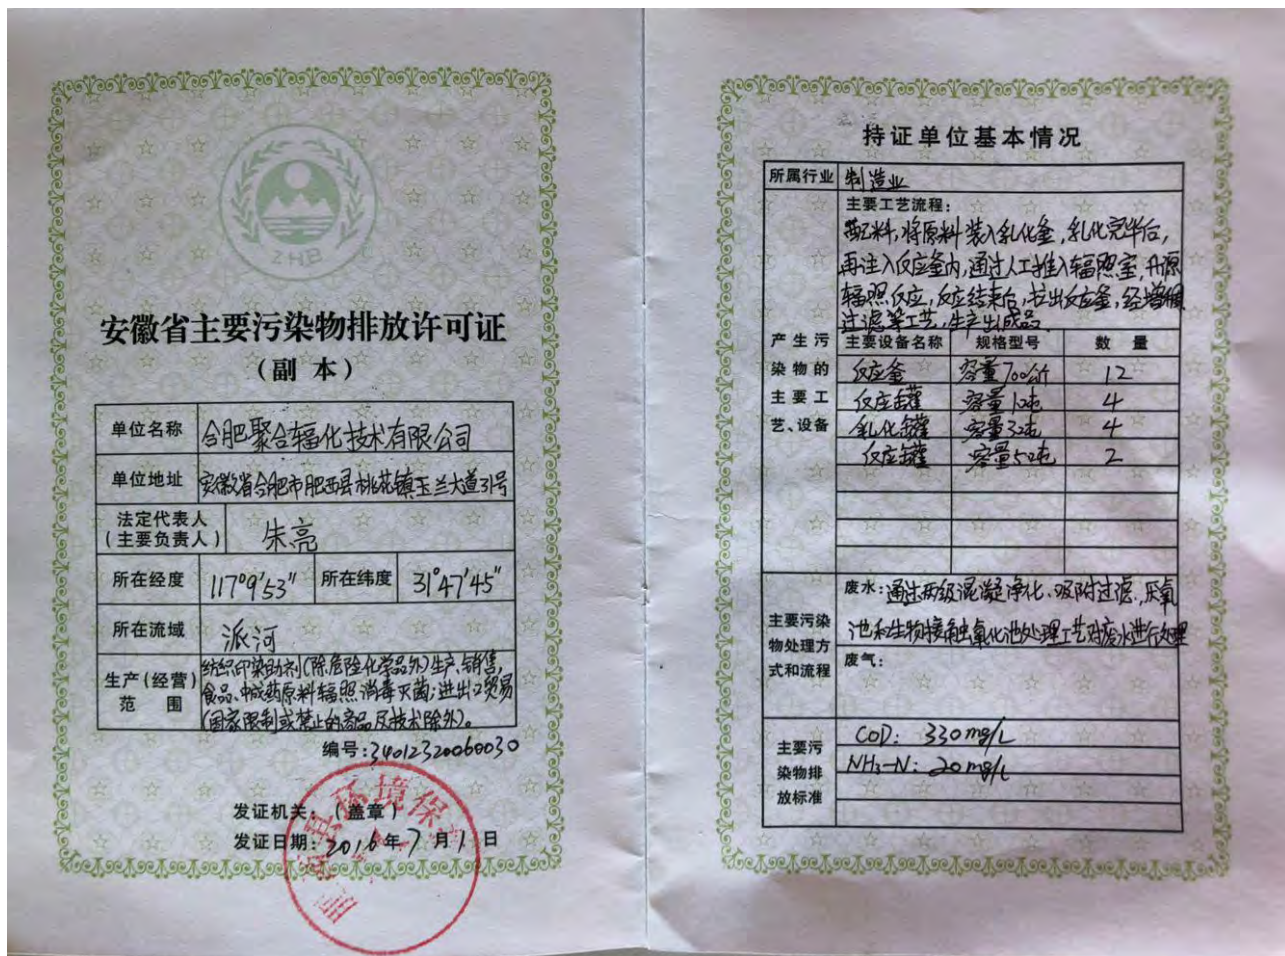 ZHB
安徽省主要污染物排放许可证
(副 本)
单位名称 合肥聚合辐化技术有限公司
单位地址 安徽省合肥市肥西县桃花镇玉兰大道31号
法定代表人
(主要负责人) 朱亮
所在经度 117°9′53″ 所在纬度 31°47′45″
所在流域 派河
生产(经营)
范 围
纺织印染助剂(除危险化学品外)生产、销售,
食品、中成药原料辐照消毒灭菌;进出口贸易
(国家限制或禁止的商品及技术除外)。
编号:34012320060030
发证机关:(盖章)
发证日期:2016年7月1日
肥西县环境保
持证单位基本情况
所属行业 制造业
产生污
染物的
主要工
艺、设备
主要工艺流程:
配料,将原料装入乳化釜,乳化完毕后,
再注入反应釜内,通过人工推入辐照室,升源
辐照反应,反应结束后,拉出反应釜,经增稠
过滤等工艺,生产出成品.
主要设备名称 规格型号 数 量
反应釜 容量700公斤 12
反应罐 容量10吨 4
乳化罐 容量30吨 4
反应罐 容量50吨 2
主要污染
物处理方
式和流程
废水:通过两级混凝净化、吸附过滤,厌氧
池和生物接触氧化池处理工艺对废水进行处理
废气:
主要污
染物排
放标准
COD: 330mg/L
NH3-N: 20mg/L